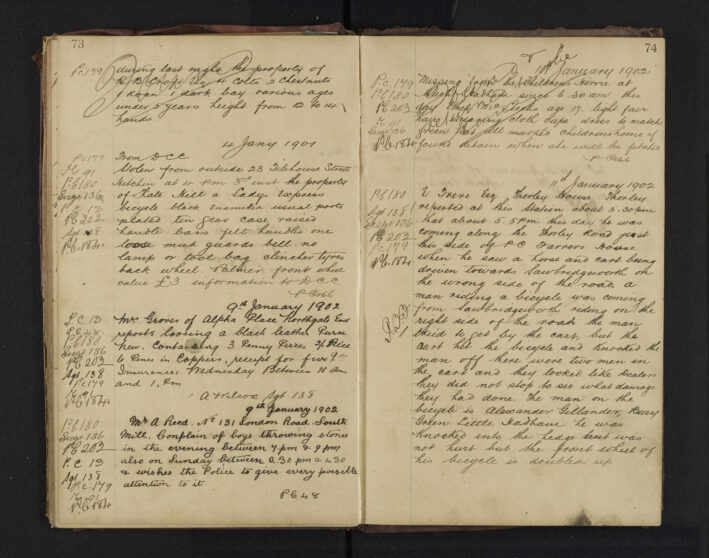 73
Pc 179 during last night the property of
2 colts 2 chestnuts
1 roan 1 dark bay various ages
under 5 years height from 12 to 14
hands
4 Jany 1901
Pc 179 From D.C.C.
Stolen from outside 23 Tilehouse Street
Pc 180 Hitchin at 4 pm 3rd inst the property
Sergt 136 of Kate Hill a Lady Express
bicycle black enamelled usual parts
Pc 202 plated tin gear case raised
Sgt 138 handle bars felt handles one
Pc 184 loose mud guards bell no
lamp or tool bag clincher tyres
back wheel Palmer front wheel
value £3 information to D.C.C.
P Cobb
9th January 1902
P.C. 13 Mr Groves of Alpha Place Northgate End
P.C. 48 reports loosing a black leather Purse
Pc 180 New. Containing 3 Penny Pieces, 2/- Piece
Sergt 136 6 Pence in Coppers, receipt for five
Pc 202 Insurances. Wednesday Between 11 am
Sgt 138 and 1. Pm
Pc 179
Pc 184 A Wilcox Sgt 138
9th January 1902
Pc 180 Mr A Reed. No 131 London Road. South
Sergt 136 Mill. Complain of boys throwing stones
Pc 202 in the evening between 7 pm & 9 pm
P.C. 13 also on Sunday between 2.30 pm & 4.30
Sgt 138 & wishes the Police to give every possible
P.C. 179 attention to it
Pc 184 P.C 48
74
10th January 1902
Pc 179 Missing from the Childrens Home at
Pc 180 Much Hadham since 6.30 am this
Pc 203 age 17. light fair
hair cloth cape dress to match
Sergt 136 green hat all marked childrens home if
Pc 184 found detain when she will be fetched
P Cobb
11th January 1902
Pc 180 E Frere Esq Thorley House Thorley
Sgt 138 reported at this Station about 5.30pm
Sergt 136 that about 5.5pm this day he was
Pc 202 coming along the Thorley Road just
Pc 179 this side of P.C Farrers House
Pc 184 when he saw a horse and cart being
driven towards Sawbridgeworth on
the wrong side of the road, a
man riding a bicycle was coming
from Sawbridgeworth riding on the
right side of the road the man
tried to get by the cart, but the
cart hit the bicycle and knocked the
man off there were two men in
the cart and they looked like Dealers
they did not stop to see what damage
they had done. The man on the
bicycle is Alexander Gillander, Bury
Green Little Hadham he was
knocked into the hedge but was
not hurt but the front wheel of
his bicycle is doubled up